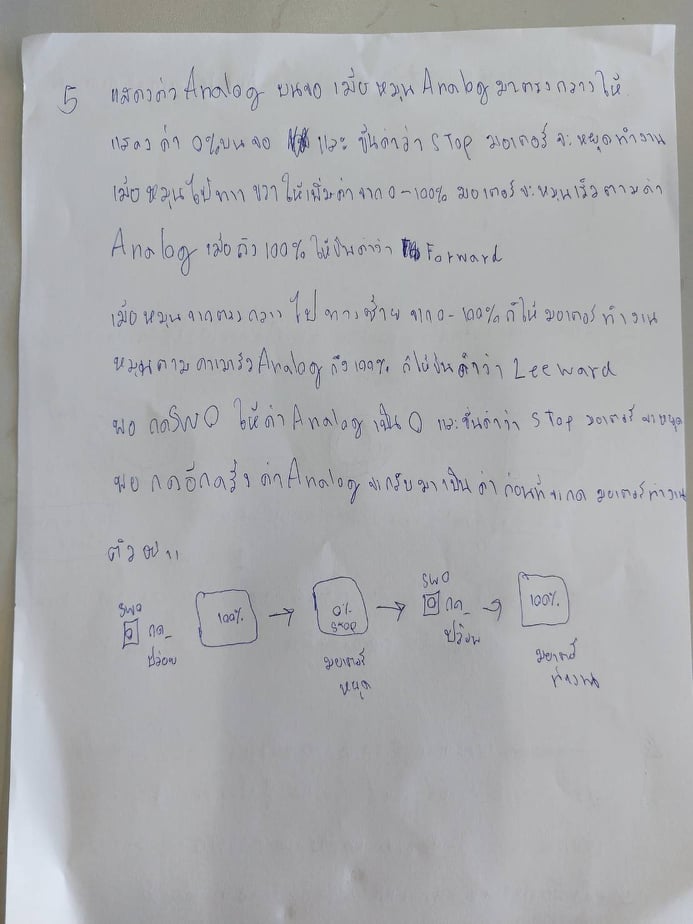 5 แสดงค่า Analog บนจอ เมื่อ หมุน Analog มาตรงกลาง ให้
แสดง ค่า 0% บน จอ และ ขึ้นคำว่า STOP มอเตอร์ จะ หยุด ทำงาน
เมื่อ หมุนไป ทาง ขวา ให้เพิ่มค่า จาก 0-100% มอเตอร์ จะ หมุนเร็ว ตาม ค่า
Analog เมื่อ ถึง 100% ให้ขึ้นคำว่า Forward
เมื่อ หมุน จากตรง กลาง ไป ทาง ซ้าย จาก 0-100% ก็ให้ มอเตอร์ ทำงาน
หมุนตาม Analog ถึง 100% ก็ให้ขึ้น คำว่า Leeward
พอ กด SW0 ให้ค่า Analog เป็น 0 และขึ้นคำว่า STOP มอเตอร์ หยุด
พอ กดอีกครั้ง ค่า Analog จะกลับมาเป็น ค่า ก่อนที่จะกด มอเตอร์ทำงาน
ตัวอย่าง
SW0 กด_ ปล่อย 100% → 0% STOP → SW0 กด_ ปล่อย → 100%
มอเตอร์ หยุด มอเตอร์ ทำงาน